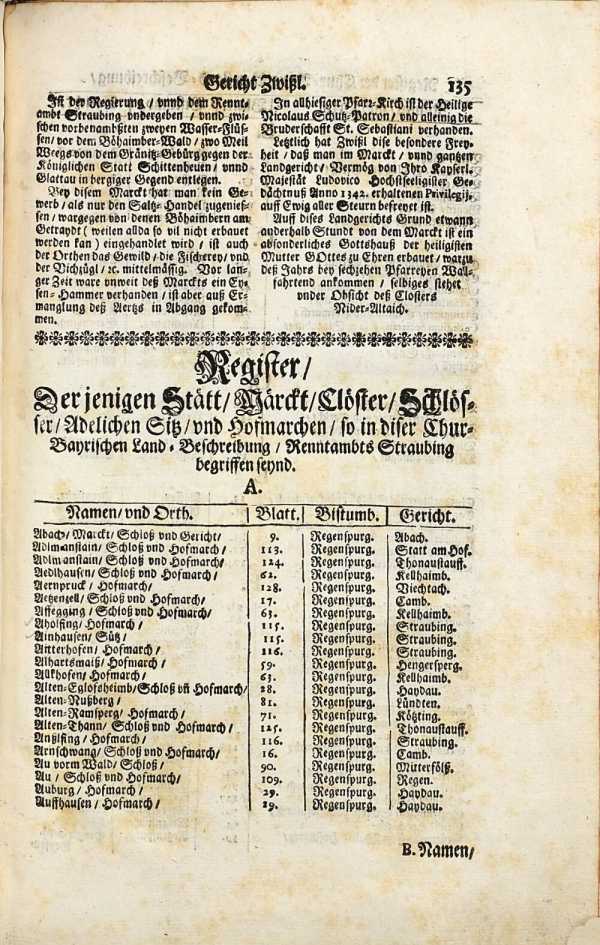 Gericht Zwißl. 135
Ist der Regierung / vnnd dem Rennt-
ambt Straubing vndergeben / vnnd zwi-
schen vorbenambsten zweyen Wasser-Flüs-
sen / vor dem Böhaimber-Wald / zwo Meil
Weegs von dem Gränitz-Gebürg gegen der
Königlichen Statt Schittenheuen / vnnd
Glattau in bergiger Gegend entlegen.
Bey disem Marckt hat man kein Ge-
werb / als nur den Saltz-Handel zugenies-
sen / wargegen von denen Böhaimbern am
Getraydt ( weilen allda so vil nicht erbauet
werden kan ) eingehandlet wird / ist auch
der Orthen das Gewild / die Fischerey / vnd
der Vichzügl / ꝛc. mittelmässig. Vor lan-
ger Zeit ware vnweit deß Marckts ein Ey-
sen-Hammer verhanden / ist aber auß Er-
manglung deß Aertzs in Abgang gekom-
men.
In allhiesiger Pfarr-Kirch ist der Heilige
Nicolaus Schutz-Patron / vnd alleinig die
Bruderschafft St. Sebastiani verhanden.
Letztlich hat Zwißl dise besondere Frey-
heit / daß man im Marckt / vnnd gantzen
Landgericht / Vermög von Ihro Kayserl.
Majestät Ludovico Hochstseeligister Ge-
dächtnuß Anno 1342. erhaltenen Privilegij,
auff Ewig aller Steurn befreyet ist.
Auff dises Landgerichts Grund etwann
anderhalb Stundt von dem Marckt ist ein
absonderliches Gottshauß der heiligisten
Mutter GOttes zu Ehren erbauet / warzu
deß Jahrs bey sechzehen Pfarreyen Wall-
fahrtend ankommen / selbiges stehet
vnder Obsicht deß Closters
Nider-Altaich.
Register /
Der jenigen Stätt / Märckt / Clöster / Schlös-
ser / Adelichen Sitz / vnd Hofmarchen / so in diser Chur-
Bayrischen Land-Beschreibung / Renntambts Straubing
begriffen seynd.
A.
Namen / vnd Orth. Blatt. Bistumb. Gericht.
Abach / Marckt / Schloß vnd Gericht / 9. Regenspurg. Abach.
Adlmanstain / Schloß vnd Hofmarch / 113. Regenspurg. Statt am Hof.
Adlmanstain / Schloß vnd Hofmarch / 124. Regenspurg. Thonaustauff.
Aedlhausen / Schloß vnd Hofmarch / 62. Regenspurg. Kellhaimb.
Aernpruck / Hofmarch / 128. Regenspurg. Viechtach.
Aetzenzell / Schloß vnd Hofmarch / 17. Regenspurg. Camb.
Affegging / Schloß vnd Hofmarch / 63. Regenspurg. Kellhaimb.
Aholfing / Hofmarch / 115. Regenspurg. Straubing.
Ainhausen / Sütz / 115. Regenspurg. Straubing.
Aitterhofen / Hofmarch / 116. Regenspurg. Straubing.
Alhartsmaiß / Hofmarch / 59. Regenspurg. Hengersperg.
Allkhofen / Hofmarch / 63. Regenspurg. Kellhaimb.
Alten-Eglofsheimb / Schloß vñ Hofmarch / 28. Regenspurg. Haydau.
Alten-Nußberg / 81. Regenspurg. Lündten.
Alten-Ramsperg / Hofmarch / 71. Regenspurg. Kötzting.
Alten-Thann / Schloß vnd Hofmarch / 125. Regenspurg. Thonaustauff.
Anßlfing / Hofmarch / 116. Regenspurg. Straubing.
Arnschwang / Schloß vnd Hofmarch / 16. Regenspurg. Camb.
Au vorm Wald / Schloß / 90. Regenspurg. Mitterfölß.
Au / Schloß vnd Hofmarch / 109. Regenspurg. Regen.
Auburg / Hofmarch / 29. Regenspurg. Haydau.
Auffhausen / Hofmarch / 29. Regenspurg. Haydau.
B. Namen /